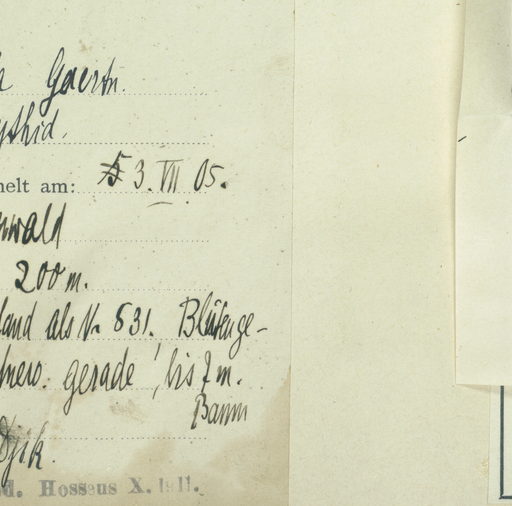 Gaertn.
melt am: 3. VII 05.
wald
200 m.
land als № 531. Blütenge-
gerade, bis 7 m.
Baum
Djik.
d. Hosseus X. 1911.